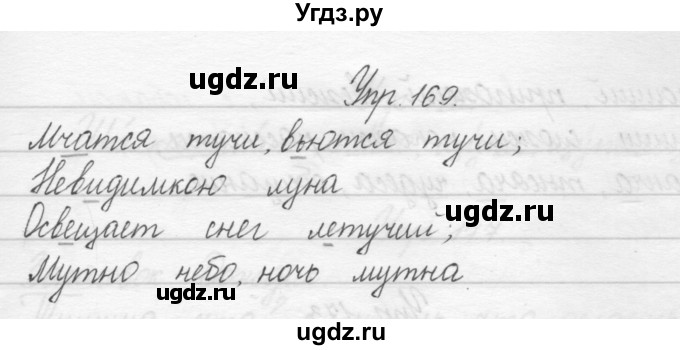 Угдз.ру
ugdz.ru
ugdz.ru
Упр. 169.
Мчатся тучи, вьются тучи;
Невидимкою луна
ugdz.ru
Освещает снег летучий;
Мутно небо, ночь мутна
ugdz.ru
ugdz.ru
ugdz.ru